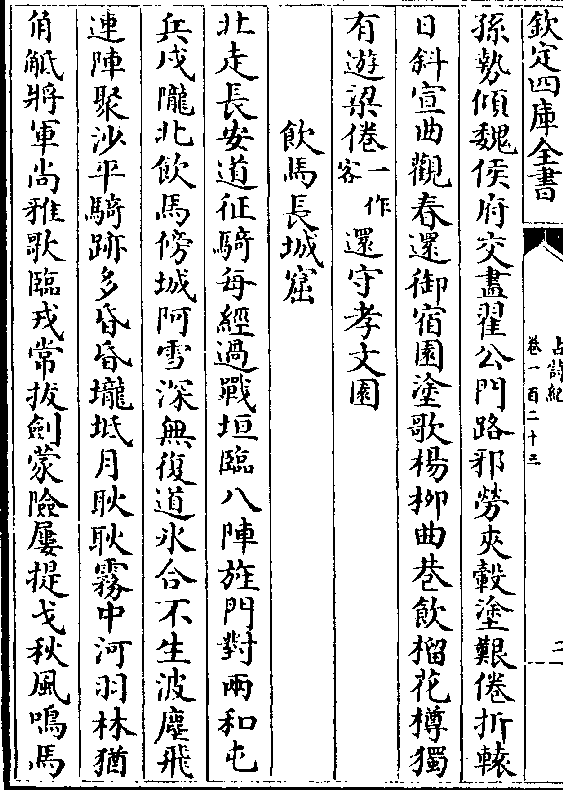 欽定四庫全書
古詩紀
卷一百二十三
二
孫勢傾魏侯府交盡翟公門路邪勞夾轂塗艱倦折轅
日斜宣曲觀春還御宿園塗歌楊栁曲巷飲榴花樽獨
有遊梁倦一作客還守孝文園
飲馬長城窟
北走長安道征騎毎經過戰垣臨八陣旌門對兩和屯
兵戍隴北飲馬傍城阿雪深無復道氷合不生波塵飛
連陣聚沙平騎跡多昏昏壠坻月耿耿霧中河羽林猶
角觝將軍尚雅歌臨戎常拔劍蒙險屢提戈秋風鳴馬